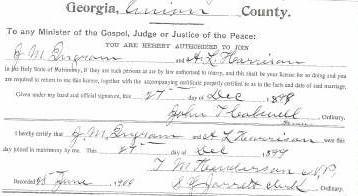 Georgia, Union County.
To any Minister of the Gospel, Judge or Justice of the Peace:
YOU ARE HEREBY AUTHORIZED TO JOIN
J M Ingram and A L Harrison
in the Holy State of Matrimony, if they are such persons as are by law authorized to marry, and this shall be your license for so doing and you
are required to return to me this license, together with the accompanying certificate properly certified to as to the facts and date of said marriage.
Given under my hand and official signature, this 27 day of Dec 1898
John T Ordinary.
I hereby certify that J M Ingram and A L Harrison were
day joined in matrimony by me. This 27 day of Dec 1899
T M Henderson N.P.
Recorded June 1900 Jarrett Ordinary.